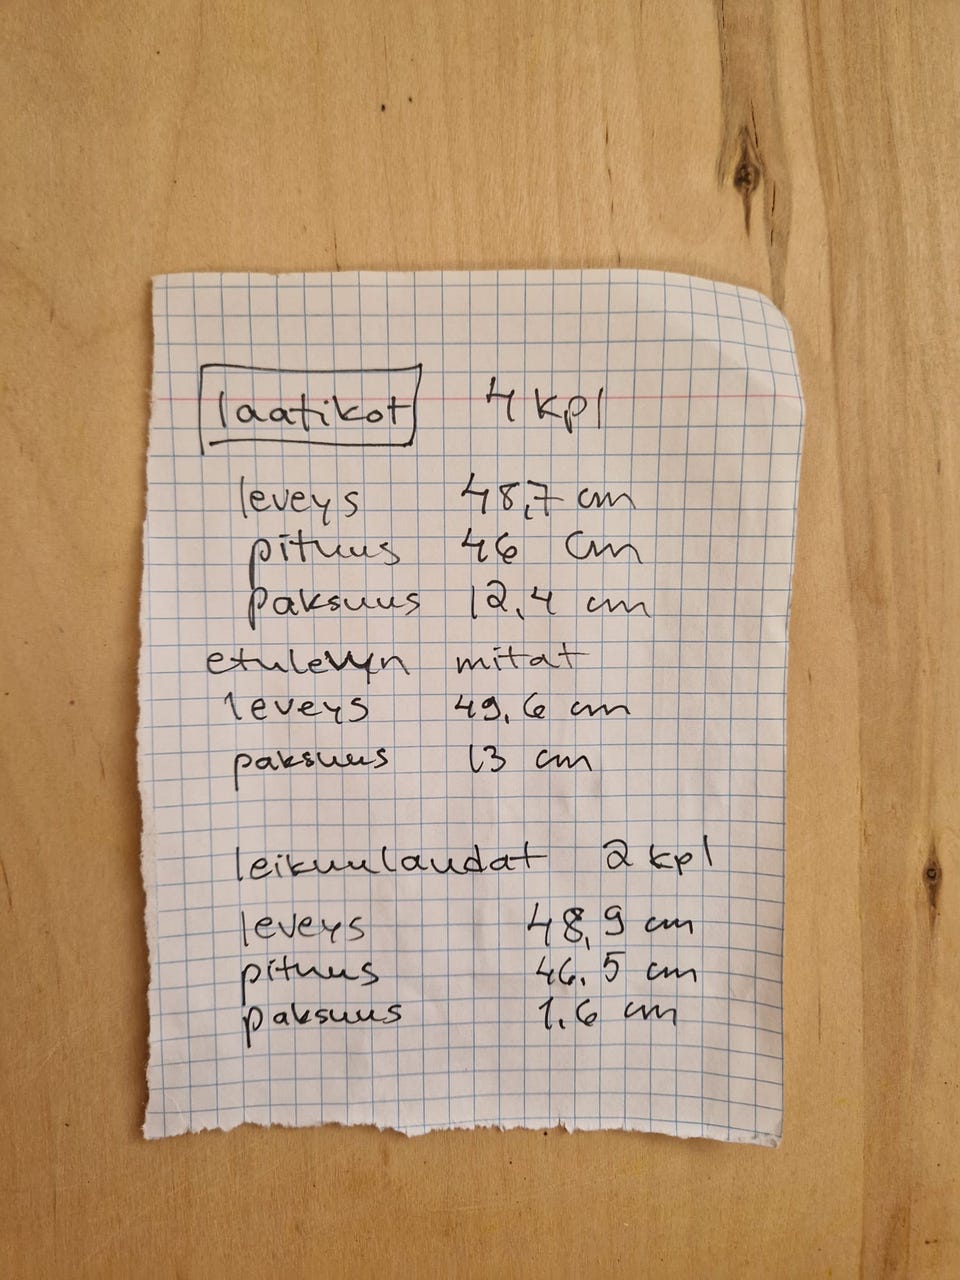 laatikot 4 kpl
leveys 48,7 cm
pituus 46 cm
paksuus 12,4 cm
etulevyn mitat
leveys 49,6 cm
paksuus 13 cm
leikuulaudat 2 kpl
leveys 48,9 cm
pituus 46,5 cm
paksuus 1,6 cm